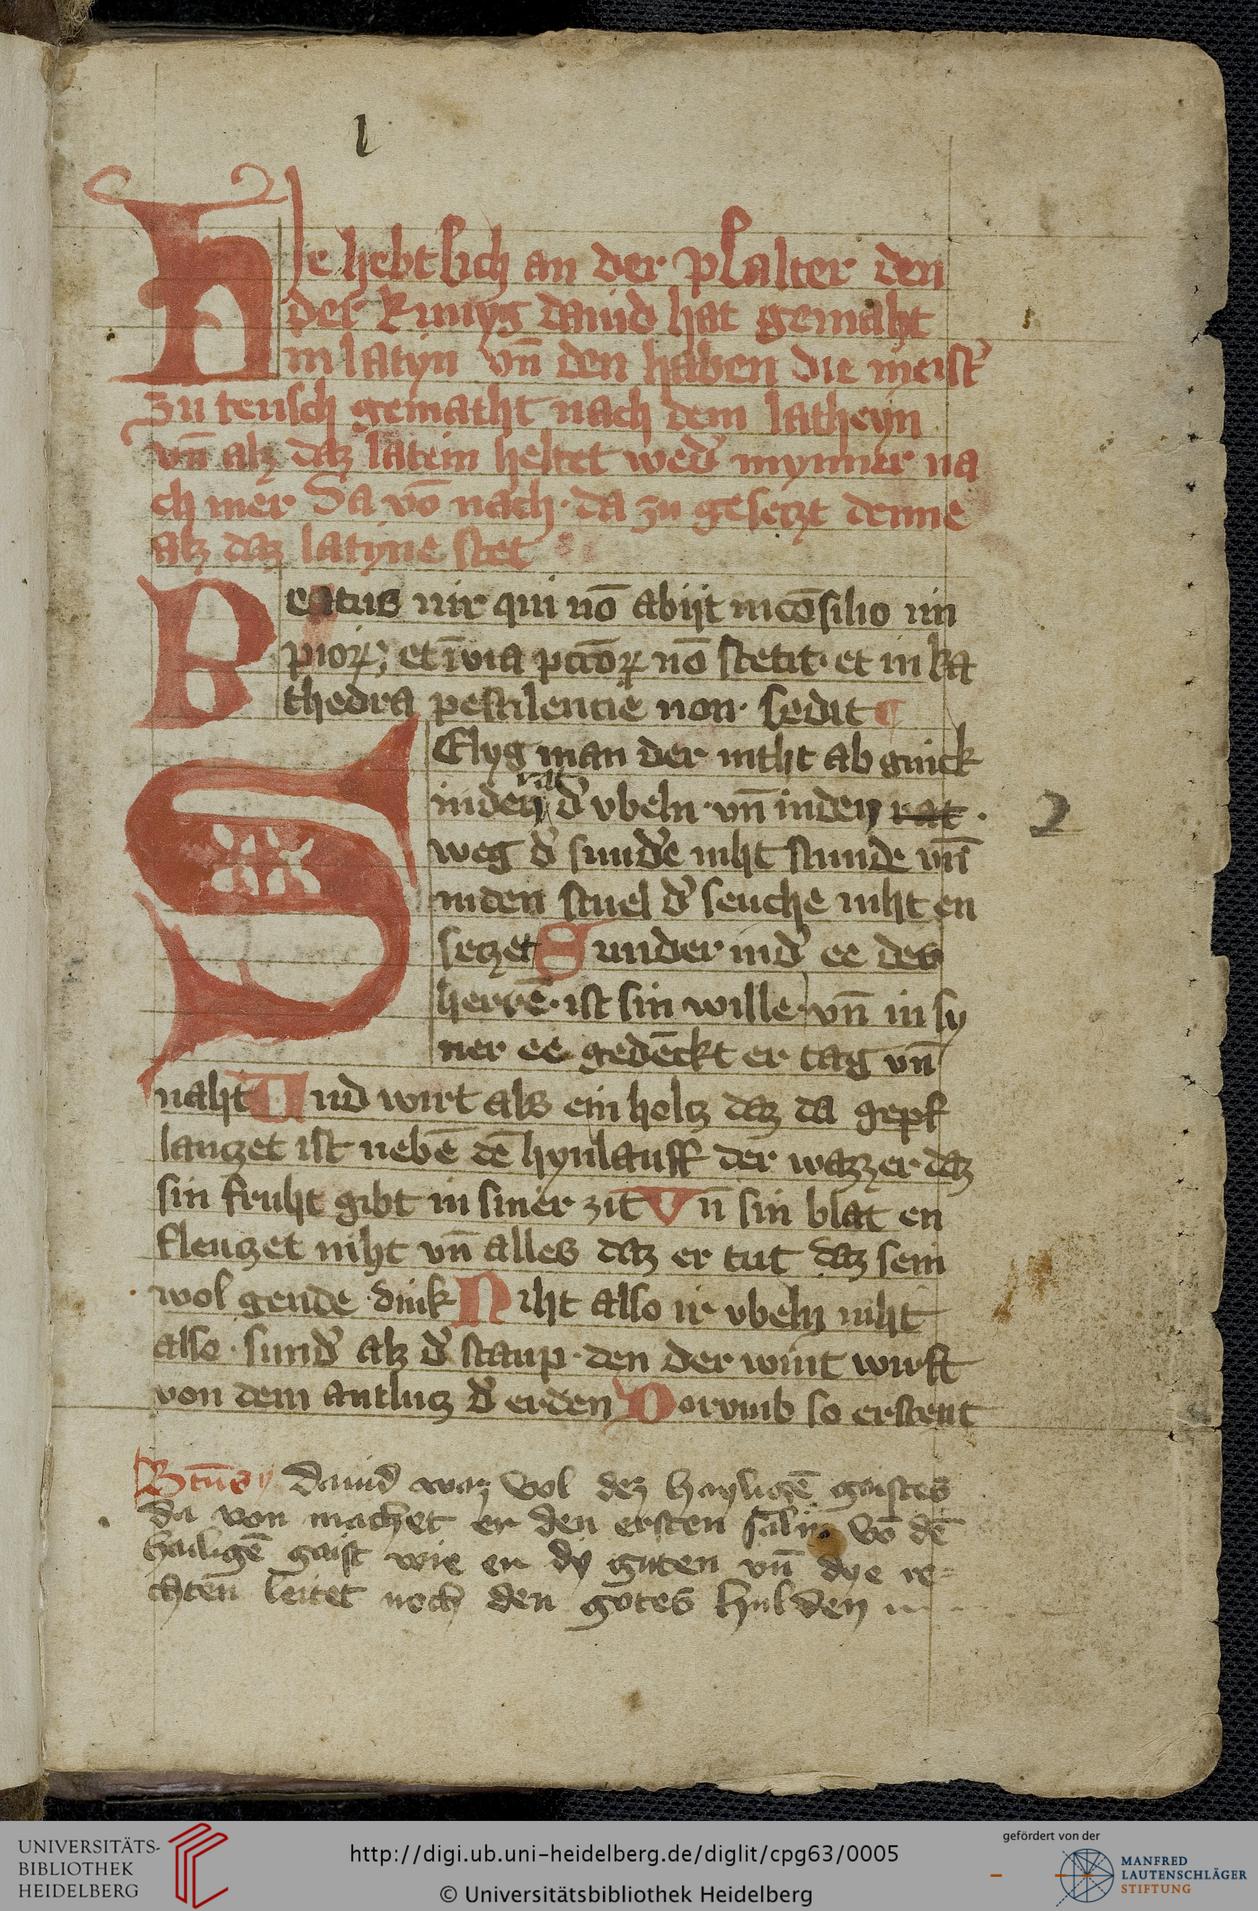 1
Hie hebt sich an der psalter den
der kunig dauid hat gemaht
in latyn vn̄ den haben die meist᷑
zu teusch gematht nach dem latheyn
vn̄ alz daz latein heltet wed᷑ mynner na
ch mer Da vō nach · da zu gesetzt denne
alz daz latyne stet
Beatus uir qui nō abijt in cōsilio im
pioꝝ, et ī via pccōꝝ nō stetit · et in ka
thedra pestilentie non · sedit
SElyg man der nitht ab ginck
rat
in den d᷑ vbeln · vn̄ in den rat ·
2
weg d᷑ sund᷑e niht stunde vn̄
in den stuel d᷑ seuche niht en
setzet Sunder in d᷑ ee des
herrē · ist sin wille · vn̄ in sy
ner ee gedēckt er tag vn̄
naht Und wirt als ein holtz daz da gepf
lantzet ist nebē dē hynlauff der wazzer daz
sin fruht gibt in siner zit Vn̄ sin blat en
fleuzet niht vn̄ alles daz er tut daz sein
wol gende dink Niht also ir vbeln niht
also · sund᷑ alz d᷑ staup · den der wint wirft
von dem antlutz d᷑ erden Dorumb so erstent
Btūs Dauid waz vol dez hayligē gaistes
da von machet er den ersten salm vō dē
hailigē gaist wie er dy guten vn̄ dye re-
chten leitet noch den gotes hulden
UNIVERSITÄTS-
BIBLIOTHEK
HEIDELBERG
http://digi.ub.uni-heidelberg.de/diglit/cpg63/0005
© Universitätsbibliothek Heidelberg
gefördert von der
MANFRED
LAUTENSCHLÄGER
STIFTUNG